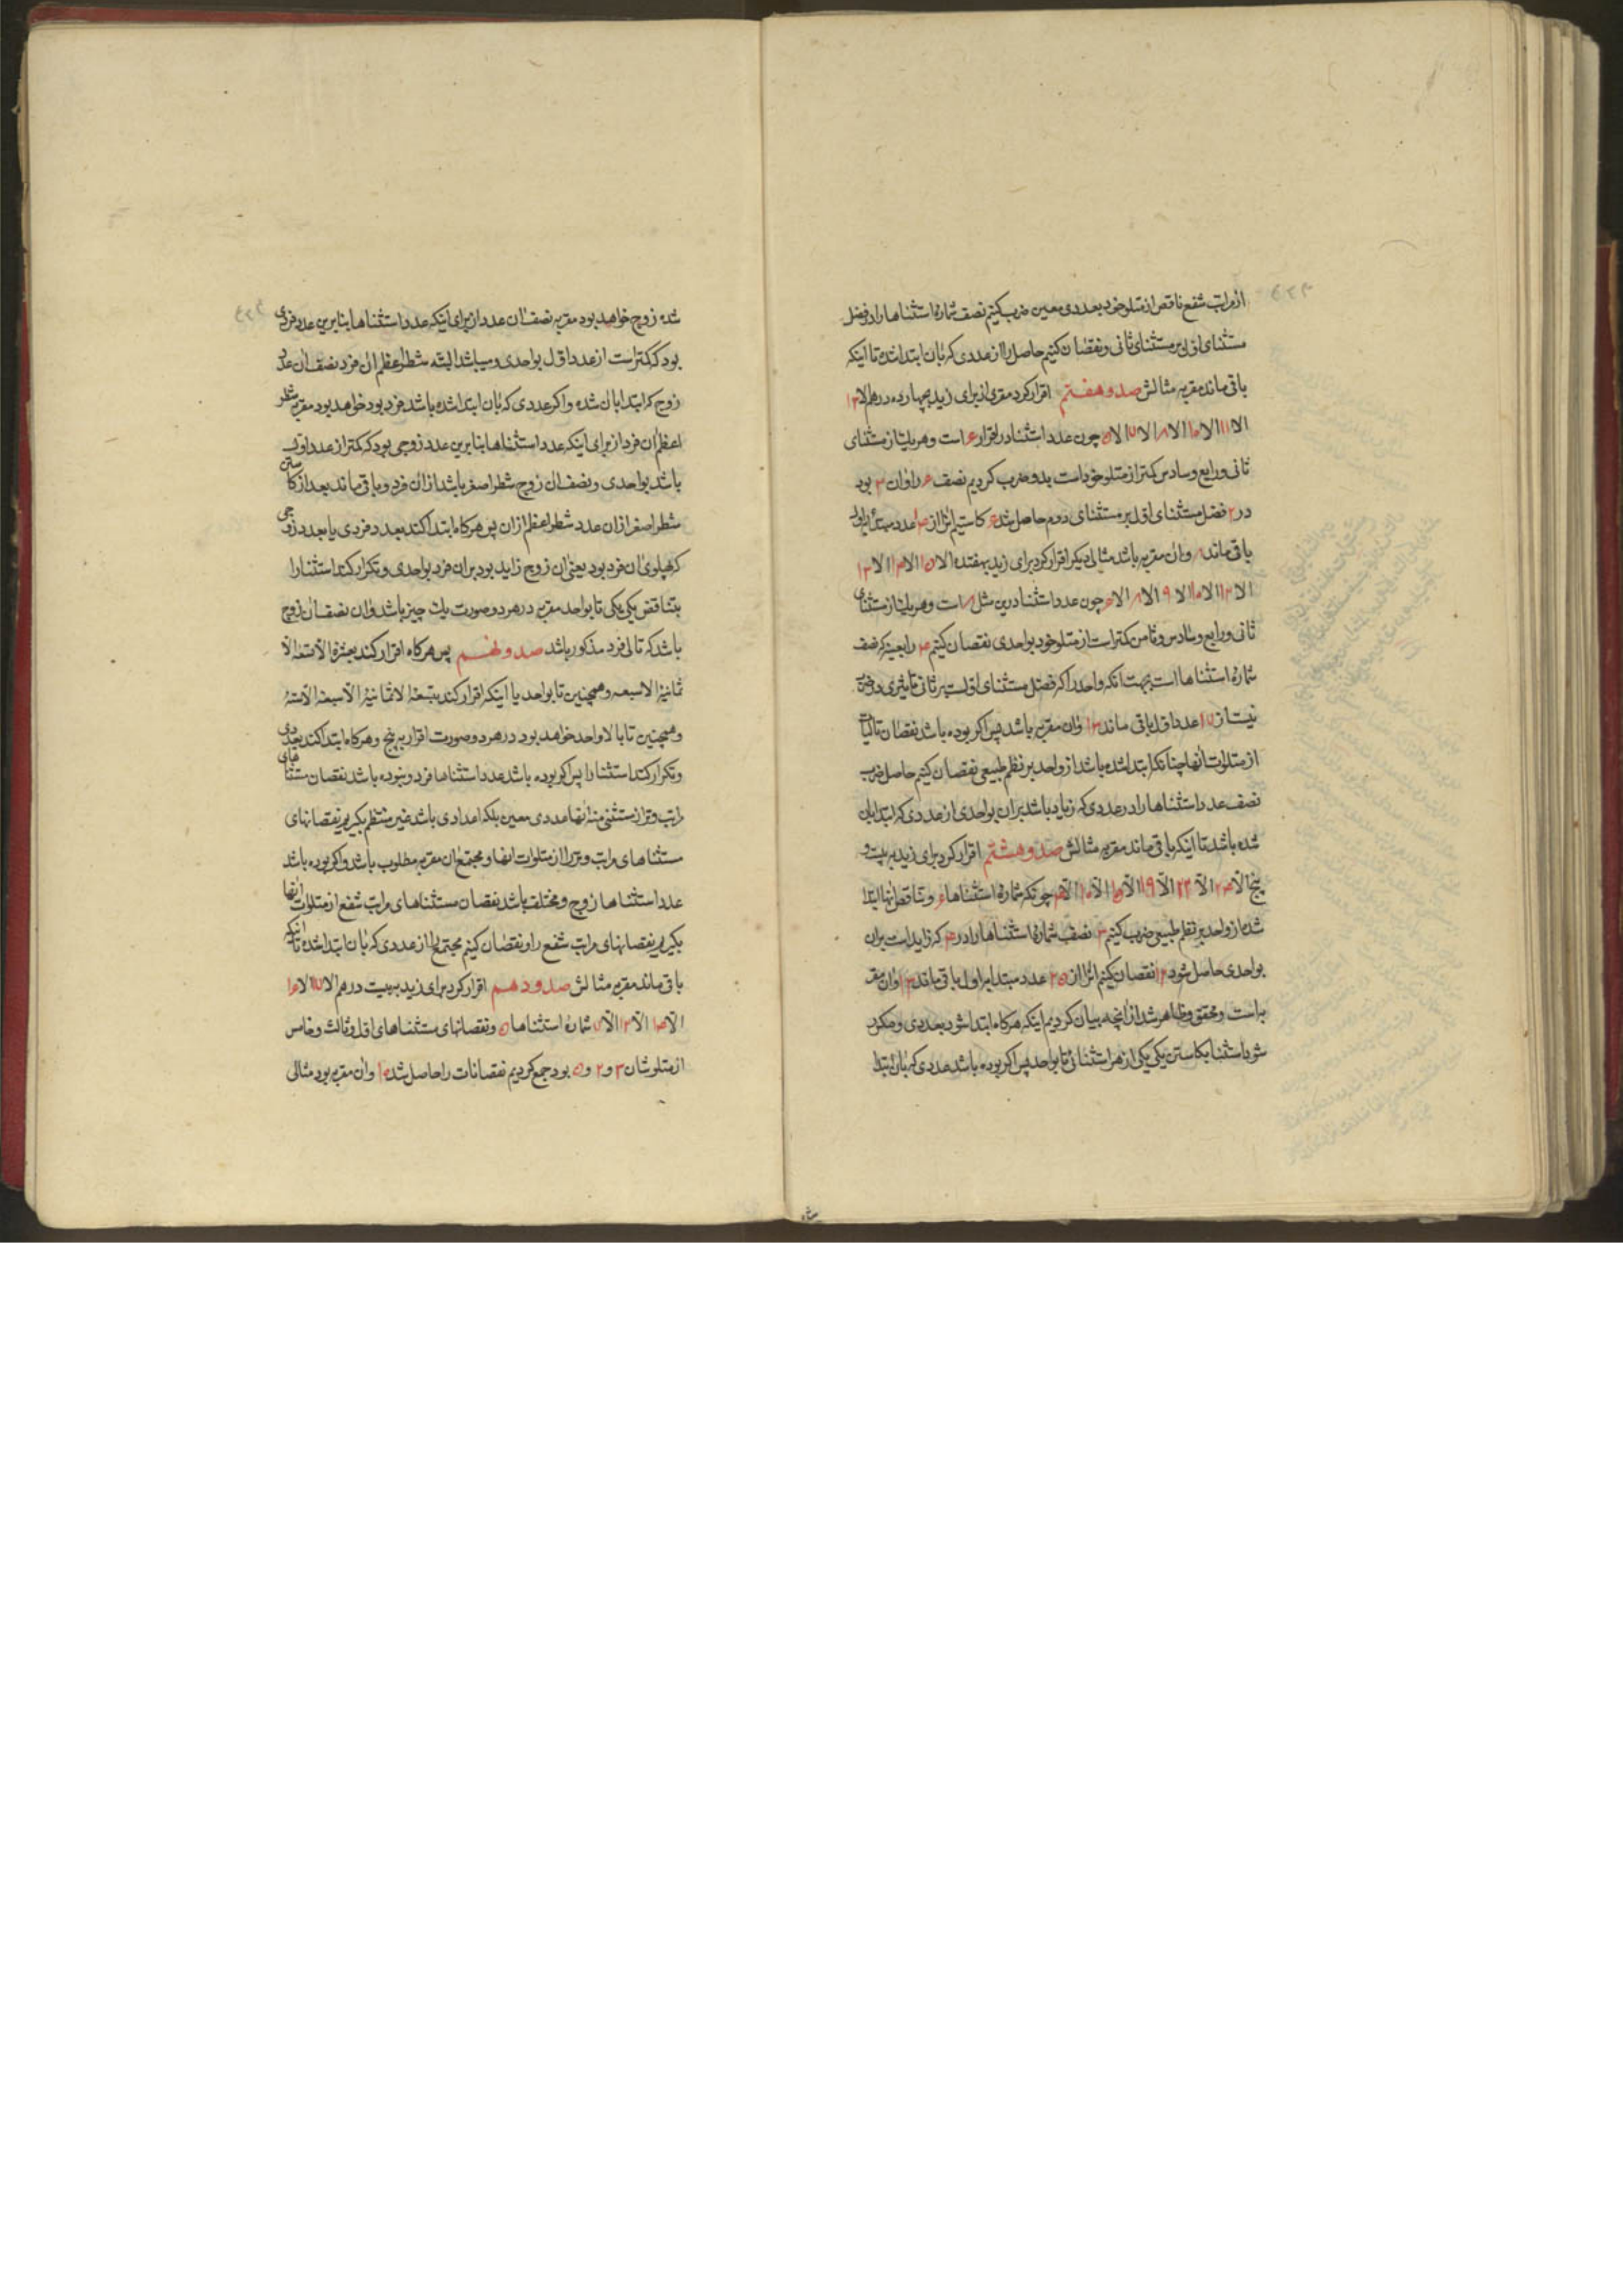 از مراتب شفع ناقص از متلو خود بعددی معین ضرب کنیم نصف شماره استثناها را در فضل
مستثنای اول بر مستثنای ثانی و نقصان کنیم حاصل را از عددی که بان ابتدا شده تا اینکه
باقی ماند مقربه مثالش صد و هفتم اقرار کرد مقری از برای زید بچهارده درهم الا ۱۳
الا ۱۱ الا ۱۰ الا ۸ الا ۷ الا ۵ چون عدد استثنا در اقرار ۶ است و هر یک از مستثنای
ثانی و رابع و سادس کمتر از متلو خود است بدو ضرب کردیم نصف ۶ را و ان ۳ بود
در ۲ فضل مستثنای اول بر مستثنای دوم حاصل شد ۶ کاستیم انرا از ۱۴ عدد مبتدا به اول
باقی ماند ۸ و ان مقربه باشد مثالی دیگر اقرار کرد برای زید بهفتده الا ۱۵ الا ۱۴ الا ۱۳
الا ۱۲ الا ۱۰ الا ۹ الا ۸ الا ۴ چون عدد استثنا درین مثل ۸ است و هر یک از مستثنای
ثانی و رابع و سادس و ثامن کمتر است از متلو خود بواحدی نقصان کنیم ۴ را بعینه که نصف
شماره استثناها است بجهت انکه واحد را که فضل مستثنای اولست بر ثانی تاثیری در ضرب
نیست از ۱۷ عدد اول باقی ماند ۱۳ و ان مقربه باشد پس اگر بوده باشد نقصان تالیات
از متلوات انها چنانکه ابتدا شده باشد از واحد بر نظم طبیعی نقصان کنیم حاصل ضرب
نصف عدد استثناها را در عددی که زیاد باشد بران بواحدی از عددی که ابتدا بان
شده باشد تا اینکه باقی ماند مقربه مثالش صد و هشتم اقرار کرد برای زید به بیست و
پنج الا ۲۴ الا ۲۲ الا ۱۹ الا ۱۵ الا ۱۰ الا ۴ چونکه شماره استثناها ۶ و تناقص انها ابتدا
شده از واحد بر نظم طبیعی ضرب کنیم ۳ نصف شماره استثناها را در ۴ که زاید است بران
بواحدی حاصل شود ۱۲ نقصان کنیم انرا از ۲۵ عدد مبتدا به اول باقی ماند ۱۳ و ان مقر
به است و محقق و ظاهر شد از انچه بیان کردیم اینکه هر گاه ابتدا شود بعددی و مکرر
شود استثنا بکاستن یکی یکی از هر استثنائی تا بواحد پس اگر بوده باشد عددی که بان ابتدا
شده زوج خواهد بود مقربه نصف ان عدد از برای اینکه عدد استثناها بنابرین عدد فردی
بود که کمتر است از عدد اول بواحدی و میباشد البته شطر اعظم ان فرد نصف ان عدد
زوج که ابتدا بان شده و اگر عددی که بان ابتدا شده باشد فرد بود خواهد بود مقربه شطر
اعظم ان فرد از برای اینکه عدد استثناها بنابرین عدد زوجی بود که کمتر از عدد اول
باشد بواحدی و نصف ان زوج شطر اصغر باشد از ان فرد و باقی ماند بعد از کاستن
شطر اصغر از ان عدد شطر اعظم از ان پس هر گاه ابتدا کند بعدد فردی یا بعدد زوجی
که پهلوی ان فرد بود یعنی ان زوج زاید بود بران فرد بواحدی و تکرار کند استثنا را
بتناقص یکی یکی تا بواحد مقربه در هر دو صورت یک چیز باشد و ان نصف ان زوج
باشد که تالی فرد مذکور باشد صد و نهم پس هر گاه اقرار کند بعشرة الا تسعة الا
ثمانیة الا سبعه و همچنین تا بواحد یا اینکه اقرار کند بتسعة الا ثمانیة الا سبعة الا ستة
و همچنین تا بالا واحد خواهد بود در هر دو صورت اقرار به پنج و هر گاه ابتدا کند بعددی
و تکرار کند استثنا را پس اگر بوده باشد عدد استثناها فرد و نبوده باشد نقصان مستثناهای
مراتب وتر از مستثنی منه انها عددی معین بلکه اعدادی باشد غیر منتظم بگیریم نقصانهای
مستثناهای مراتب وتر را از متلوات انها و مجتمع ان مقربه مطلوب باشد و اگر بوده باشد
عدد استثناها زوج و مختلف باشد نقصان مستثناهای مراتب شفع از متلوات انها
بگیریم نقصانهای مراتب شفع را و نقصان کنیم مجتمع را از عددی که بان ابتدا شده تا انکه
باقی ماند مقربه مثالش صد و دهم اقرار کرد برای زید به بیست درهم الا ۱۷ الا ۱۶
الا ۱۴ الا ۱۲ الا ۷ شماره استثناها ۵ و نقصانهای مستثناهای اول و ثالث و خامس
از متلوشان ۳ و ۲ و ۵ بود جمع کردیم نقصانات را حاصل شد ۱۰ و ان مقربه بود مثالی